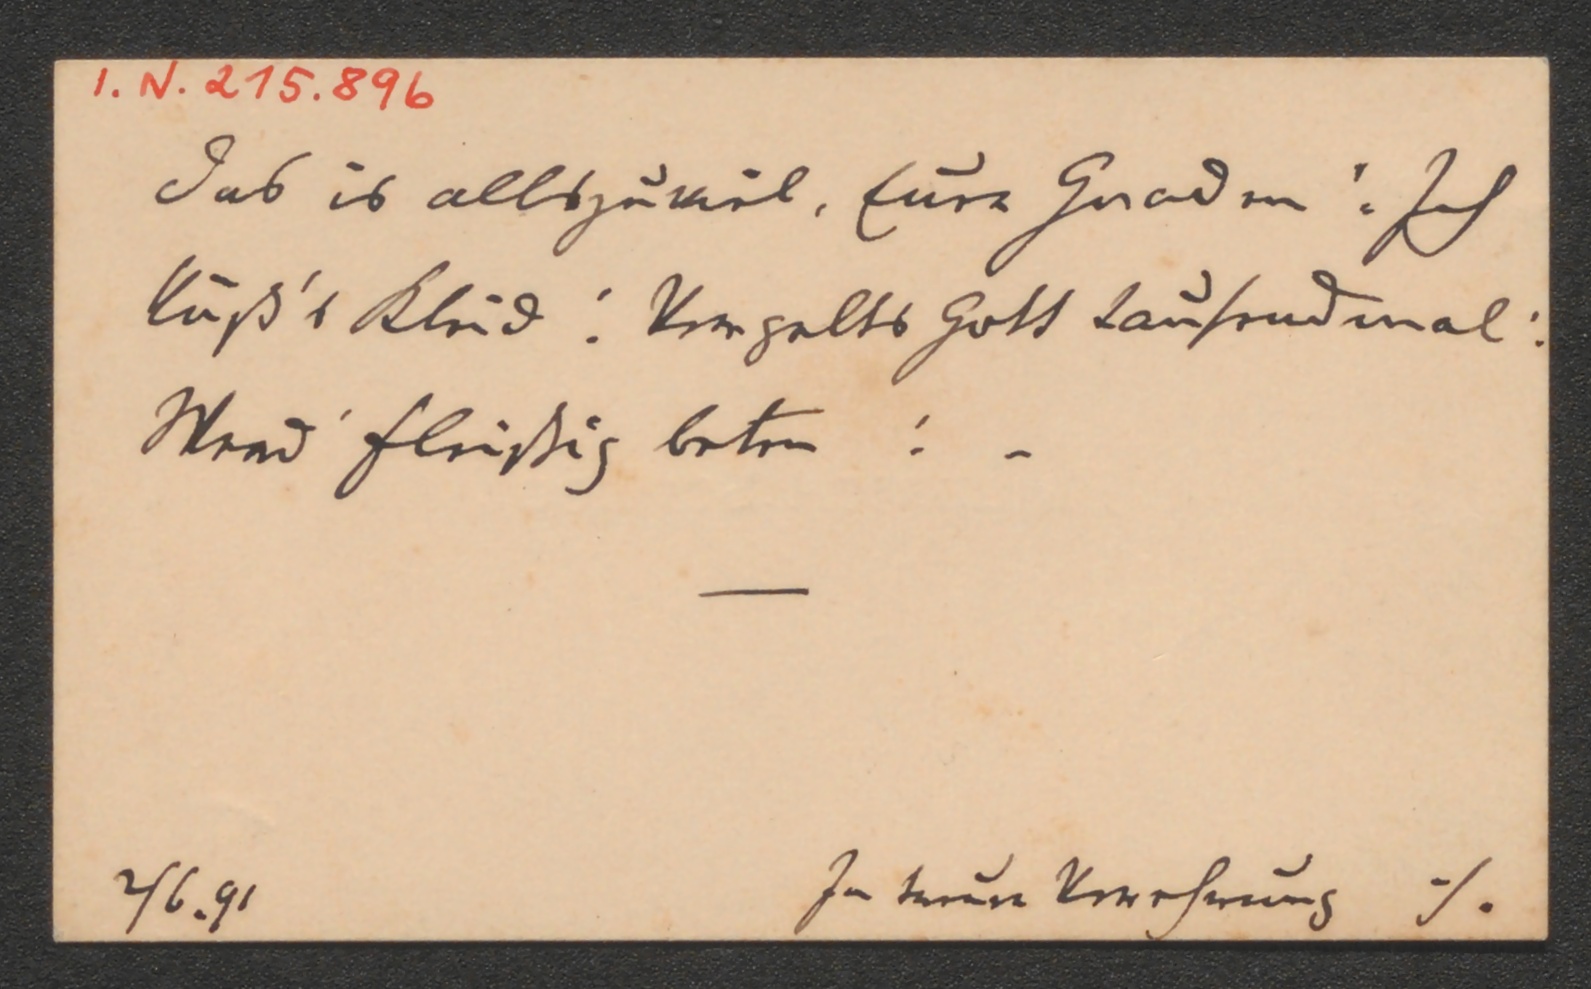 I. N. 215.896
Das is allszuviel, Eure Gnaden! Ich
küß's Kleid! Vergelts Gott tausendmal!
Werd' fleißig beten! –
2/6.91
In treuer Verehrung